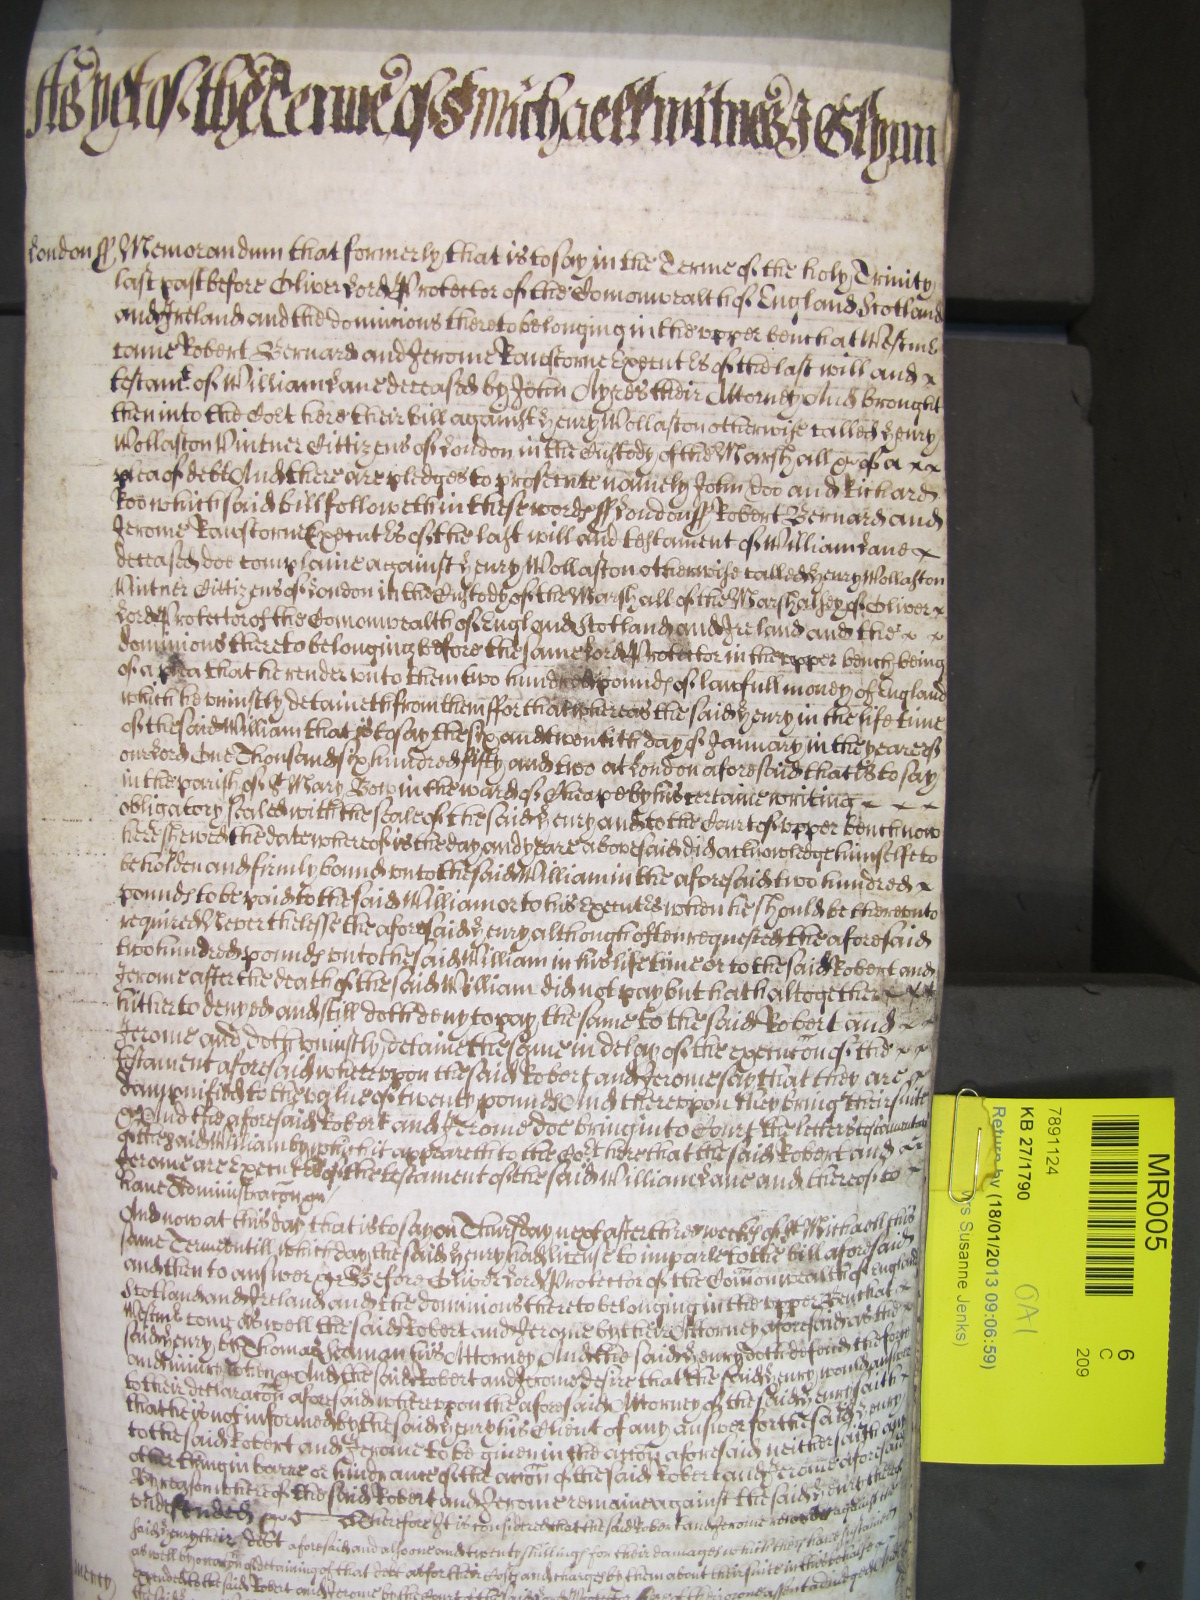 As yet of the Terme of St Michaell witnes J Glynn
London ss Memorandum that formerly that is to say in the Terme of the holy Trinity
last past before Oliver Lord Protector of the Comonwealth of England Scotland
and Ireland and the dominions thereto belonging in the upper bench at Westmr
came Robert Bernard and Jerome Ranstorne Executrs of the last will and x
testamt of William Lane deceased by John Ayres their Attorney And brought
then into the Cort here their bill against Henry Wollaston otherwise called Henry
Wollaston Vintner Cittizens of London in the Custody of the Marshall &c of a x x
plea of debt And there are pledges to prosecute namely John Doo and Richard
Roo which said bill followeth in these words ss London ss Robert Bernard and
Jerome Ranstorne Executrs of the last will and testament of William Lane x
deceased doe complaine against Henry Wollaston otherwise called Henry Wollaston
Vintner Cittizens of London in the Custody of the Marshall of the Marshalsey of Oliver x
Lord Protector of the Comonwealth of England Scotland and Ireland and the x x
dominions thereto belonging before the same Lord Protector in the upper bench being
of a plea that he render unto them two hundred pounds of lawfull money of England
which he uniustly detaineth from them ffor that whereas the said Henry in the life time
of the said William that is to say the six and twentith day of January in the yeare of
our Lord One Thousand six hundred fifty and two at London aforesaid that is to say
in the parish of St Mary Bow in the ward of Cheape by his certaine writing
obligatory sealed with the seale of the said Henry and to the Court of upper bench now
here shewed the date whereof is the day and yeare abovesaid did acknowledge himselfe to
be holden and firmly bound unto the said William in the aforesaid two hundred x
pounds to be paid to the said William or to his Executrs when he should be thereunto
required Neverthelesse the aforesaid Henry although often requested the aforesaid
two hundred pounds unto the said William in his life time or to the said Robert and
Jerome after the death of the said William did not pay but hath altogether x x x
hitherto denyed and still doth deny to pay the same to the said Robert and x x
Jerome and doth uniustly detaine the same in delay of the execution of the x x
testament aforesaid whereupon the said Robert and Jerome say that they are x
dampnified to the value of twenty pounds And thereupon they bring their suite
&c And the aforesaid Robert and Jerome doe bring into Court the letters testamentary
of the said William by which it appeareth to the Cort here that the said Robert and x
Jerome are Executrs of the testament of the said William Lane and thereof to x
have Administration &c
And now at this day that is to say on Thursday next after three weekes of St Michaell this
same Terme untill which day the said Henry had license to imparle to the bill aforesaid
and then to answer &c Before Oliver Lord Protector of the Comonwealth of England
Scotland and Ireland and the dominions thereto belonging in the upper Bench at x
Westmr come as well the said Robert and Jerome by their Attorney aforesaid as the x
said Henry by Thomas Yeoman his Attorney And the said Henry doth defend the force
and iniury when &c And the said Robert and Jerome desire that the said Henry would answer
to their declaration aforesaid whereupon the aforesaid Attorney of the said Henry saith x
that he is not informed by the said Henry his Client of any answer for the said Henry
to the said Robert and Jerome to be given in the action aforesaid neither saith any
other thing in barre or hindrance of the action of the said Robert and Jerome aforesaid
By reason whereof the said Robert and Jerome remaine against the said Henry thereof
undefended &c Therefore It is considered that the said Robert and Jerome recover against the
said Henry their debt aforesaid and also one and twenty shillings for their damages which they have sustained
as well by occasion of detaining of that debt as for their Costs and charges by them about their suite in this behalfe
expended to the said Robert and Jerome by the Court of the said Lord Protector here of their owne assent adiudged
MR005
6
C
209
7891124
KB 27/1790
Return by (18/01/2013 09:06:59)
rs Susanne Jenks)
OA1